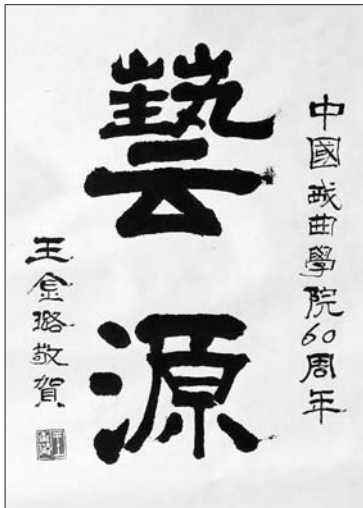 中國戲曲學院60周年
藝源
王金璐敬賀